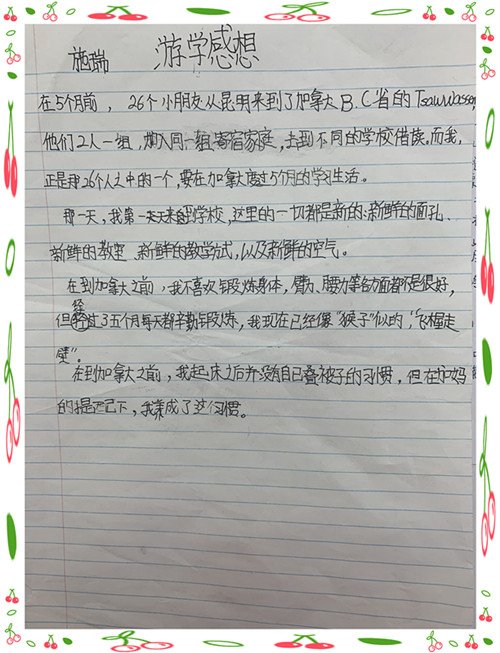 施瑞 游学感想
在5个月前，26个小朋友从昆明来到了加拿大B.C省的Tsawwassen,
他们2人一组，加入同一组寄宿家庭，去到不同的学校借读。而我，
正是那26个人之中的一个，要在加拿大度过5个月的学习生活。
那一天，我第一天来到学校，这里的一切都是新的：新鲜的面孔、
新鲜的教室、新鲜的教学方式，以及新鲜的空气。
在到加拿大之前，我不喜欢锻炼身体，臂力、腰力等各方面都不是很好，
但经过了五个月每天都辛勤锻炼，我现在已经像“猴子”似的，“飞檐走
壁”。
在到加拿大之前，我起床之后并没有自己叠被子的习惯，但在护妈
的提醒下，我养成了这个习惯。